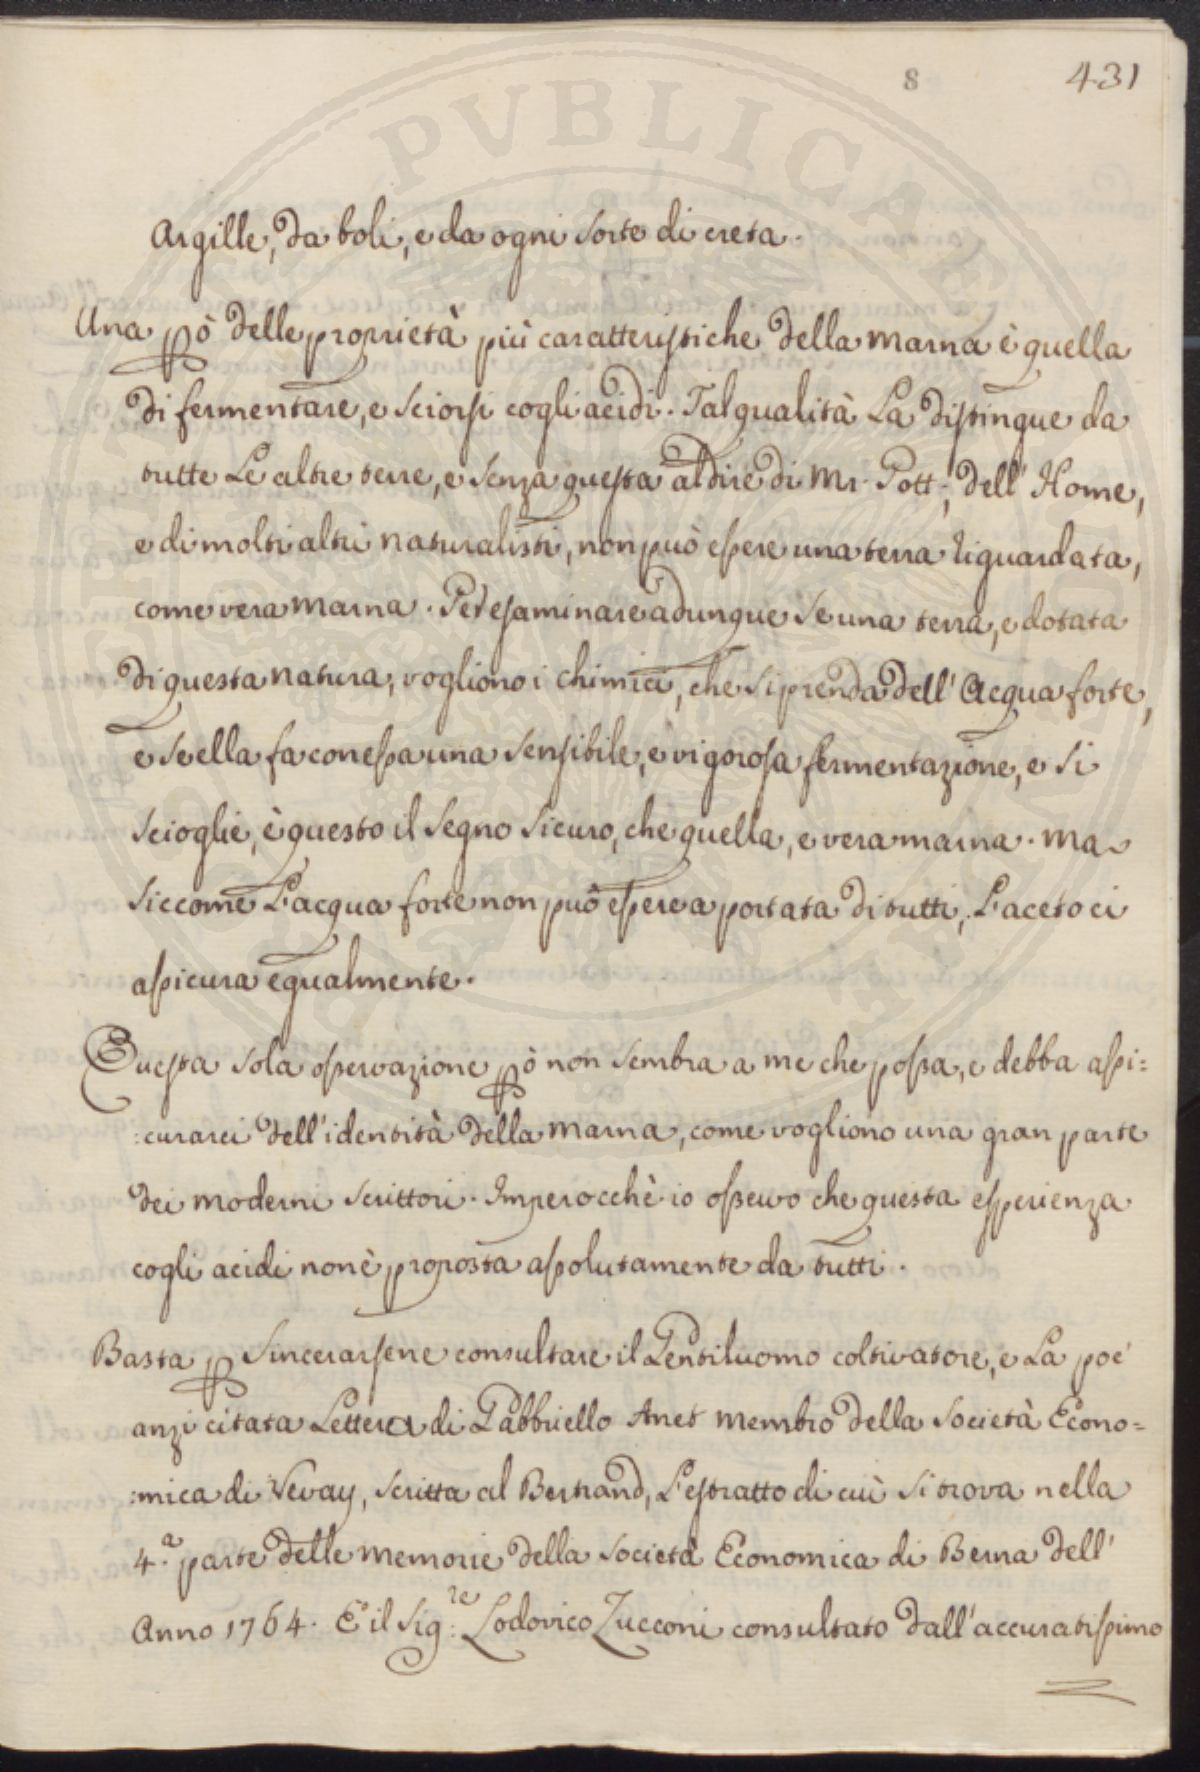 8 431
Argille, da boli, e da ogni sorte di creta.
Una ꝑò delle proprietà più caratteristiche della marna è quella
di fermentare, e sciorsi cogli acidi. Tal qualità La distingue da
tutte Le altre terre, e senza questa al dire di Mr. Pott, dell' Home,
e di molti altri naturalisti, non può essere una terra riguardata,
come vera marna. Per esaminare adunque se una terra, e dotata
di questa natura, vogliono i chimici, che si prenda dell' Acqua forte,
e se ella fa con essa una sensibile, e vigorosa fermentazione, e si
scioglie, è questo il segno sicuro, che quella, e vera marna. Ma
siccome L'acqua forte non può essere a portata di tutti, L'aceto ci
assicura egualmente.
Questa sola osservazione ꝑò non sembra a me che possa, e debba assi=
:curarci dell'identità della marna, come vogliono una gran parte
dei moderni scrittori. Imperocchè io osservo che questa esperienza
cogli acidi non è proposta assolutamente da tutti.
Basta ꝑ sincerarsene consultare il Gentiluomo coltivatore, e La poc'
anzi citata Lettera di Gabbriello Anet membro della Società Econo=
:mica di Vevay, scritta al Bertrand, L'estratto di cui si trova nella
4.ª parte delle memorie della Società Economica di Berna dell'
Anno 1764. E il Sig:re Lodovico Zucconi consultato dall'accuratissimo
PUBLICAE